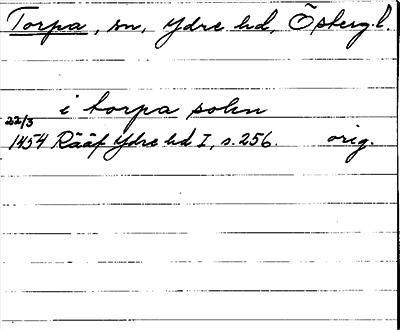 Torpa, sn, Ydre hd, Östergl.
i torpa sokn
22/3
1454 Rääf Ydre hd I, s. 256. orig.